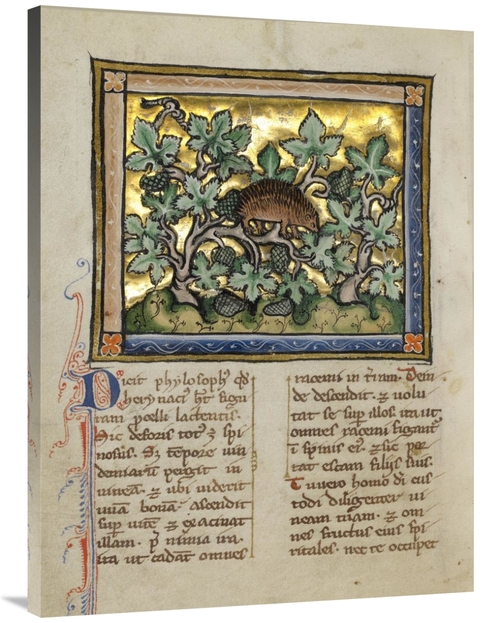 Dicit phylosoph' q̄d
herynaci' ht̄ figu
ram porcelli lactentis.
Sic deforis tot' ē spi
nosus. Sꝫ tempore uin
demiarū pergit in
uineā. ⁊ ubi uiderit
uuā bonā. ascendit
sup̄ uitē ⁊ exacinat
illam. p̄ nimia ira
ita ut cadāt omnes
racemi in t̄rām. Dein
de descendit. ⁊ uolu
tat se sup̄ illos. ita ut
omnes racemi figant'
ī spinis ei'. ⁊ sic por
tat escam filiis suis.
Tu uero homo dī cus
todi diligenter ui
neam tuam. ⁊ om
nes fructus eius spi
ritales. nec te occupet